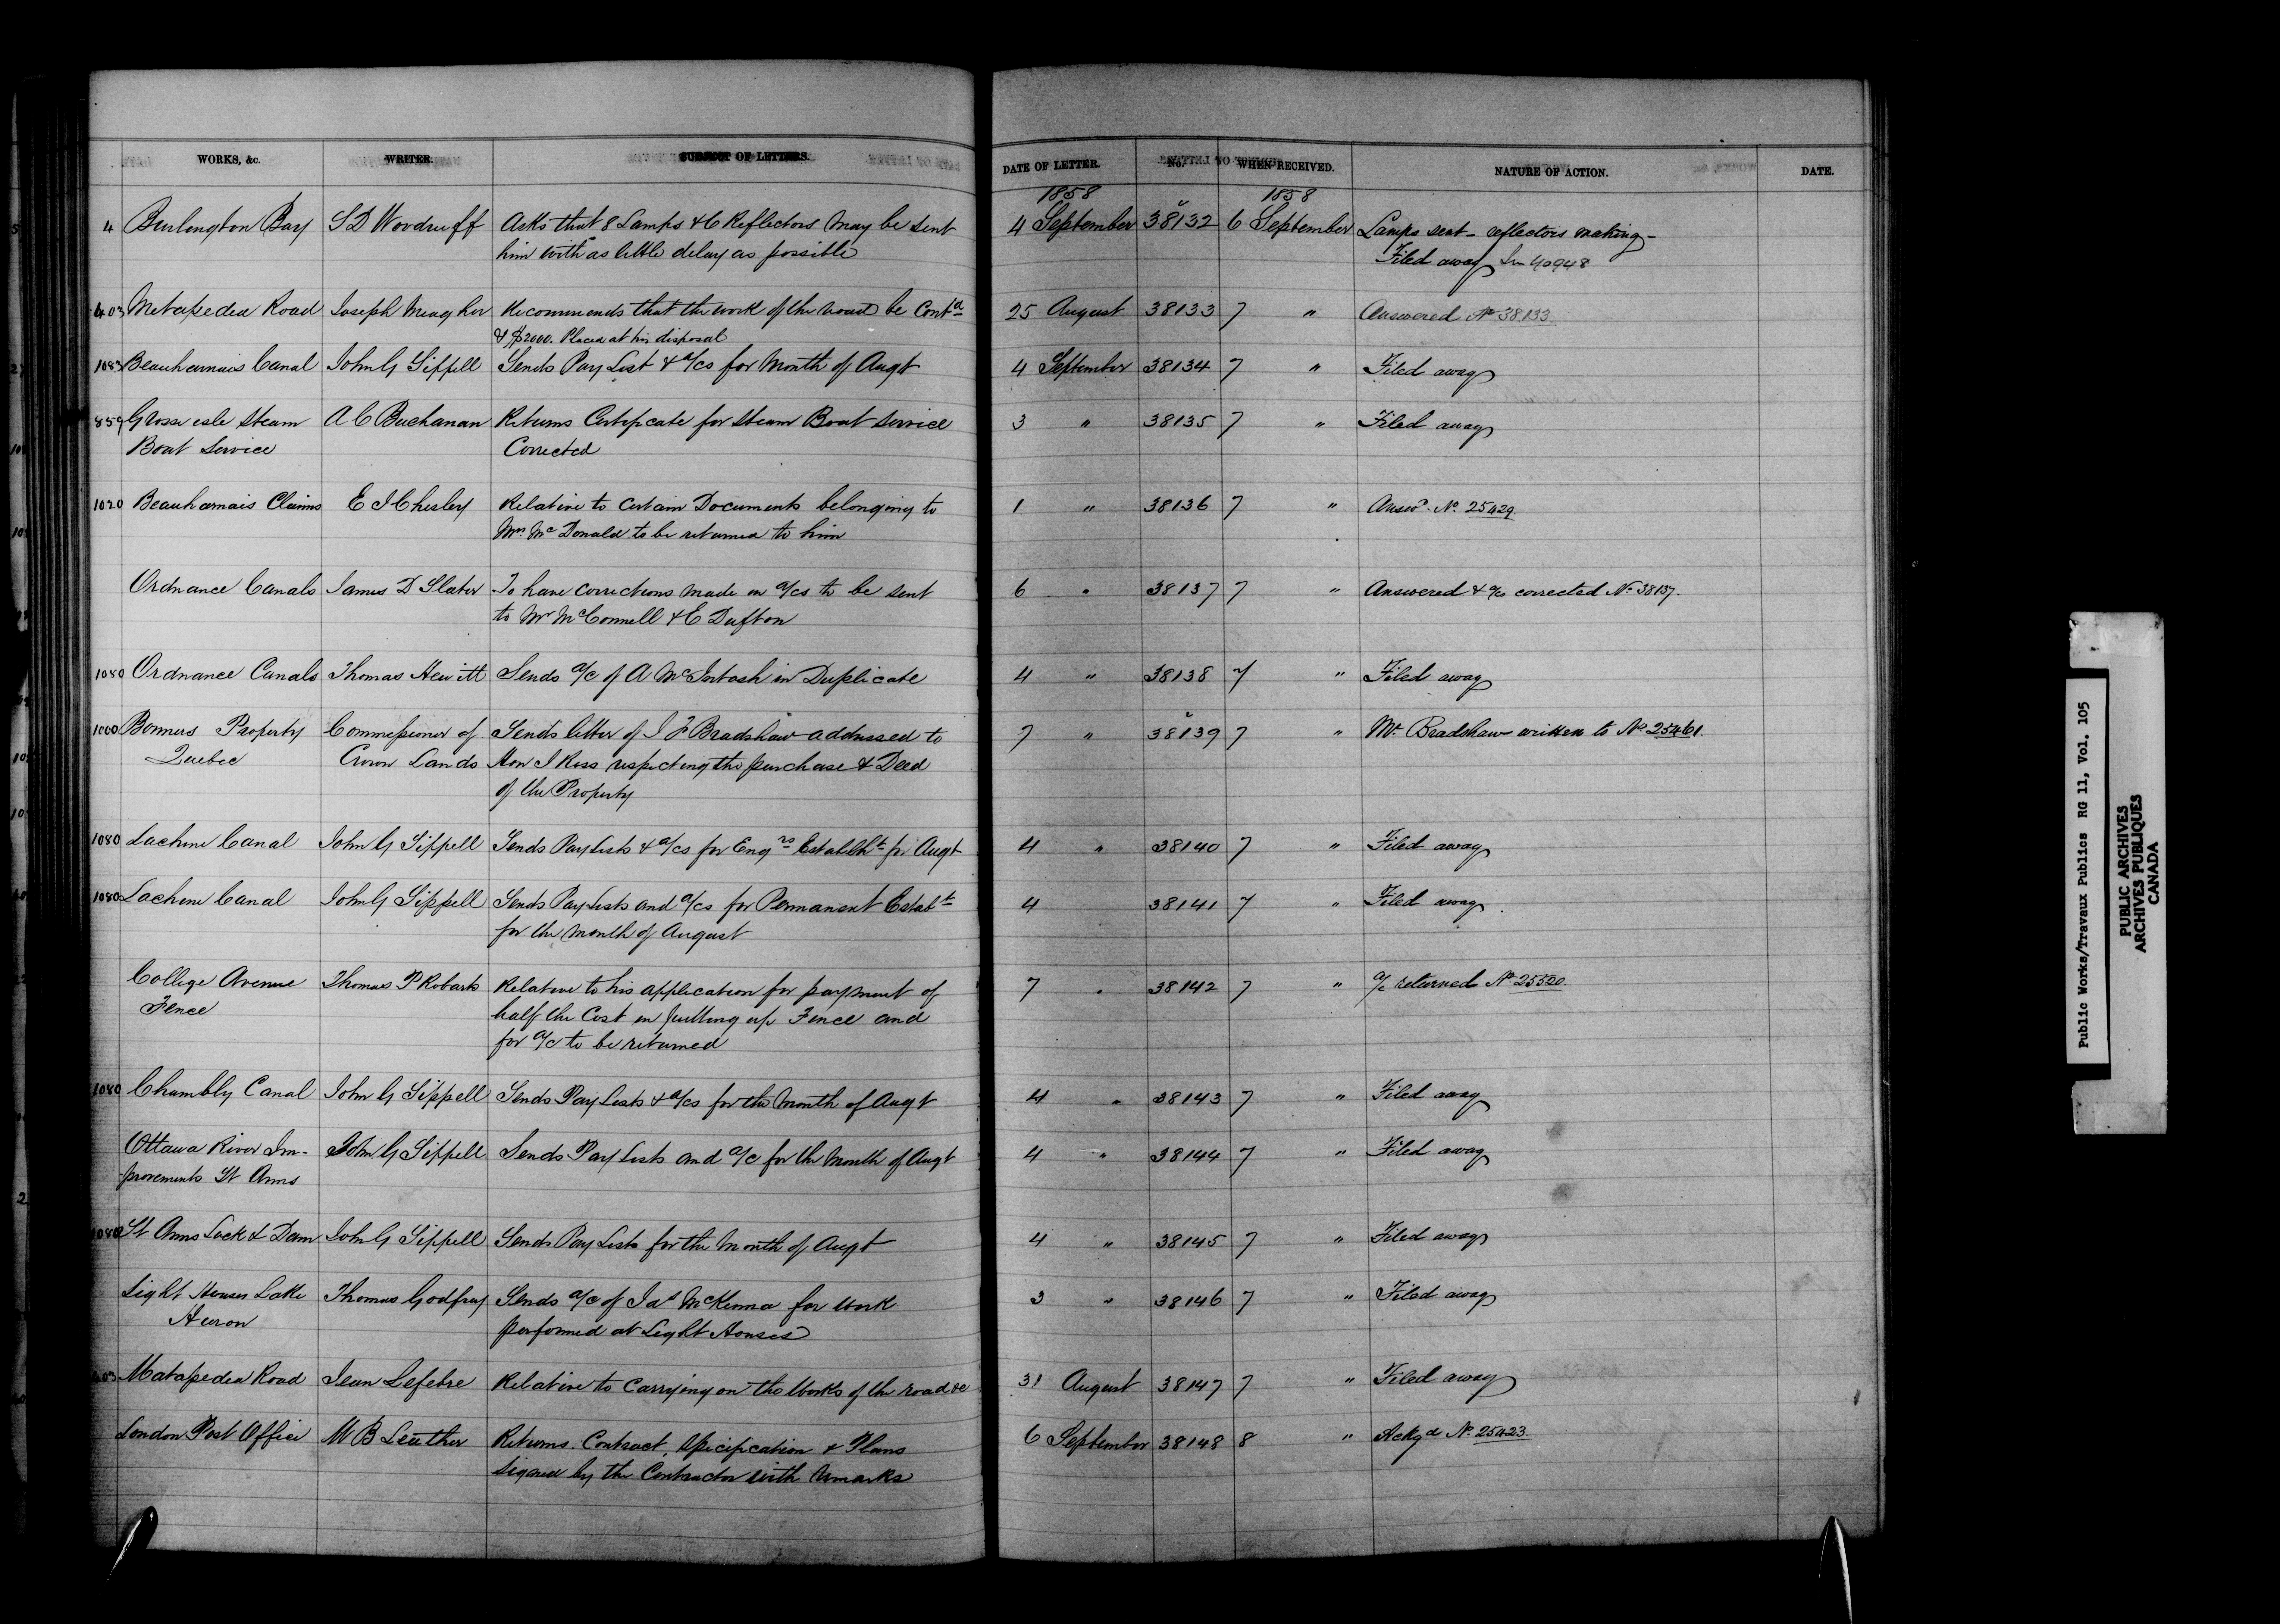 WORKS, &c. WRITER. SUBJECT OF LETTERS. DATE OF LETTER. No. WHEN RECEIVED. NATURE OF ACTION. DATE.
1858 1858
4 Burlington Bay S D Woodruff Asks that 8 Lamps & 6 Reflectors may be sent 4 September 38132 6 September Lamps sent - reflectors making -
him with as little delay as possible Filed away 40948
403 Metapedea Road Joseph Meagher Recommends that the work of the road be Contd 25 August 38133 7 " Answered No 38133
& $2000. Placed at his disposal
1083 Beauharnais Canal John G Sippell Sends Pay List & a/cs for Month of Augt 4 September 38134 7 " Filed away
859 Grosse isle Steam A C Buchanan Returns Certificate for Steam Boat Service 3 " 38135 7 " Filed away
Boat Service Corrected
1020 Beauharnais Claims E I Chesley Relative to Certain Documents belonging to 1 " 38136 7 " Answd. No. 25429
Mrs. Mc Donald to be returned to him
Ordnance Canals James D Slater To have corrections made in a/cs to be sent 6 " 38137 7 " Answered & a/cs corrected No 38137.
to Mr McConnell & E Dufton
1080 Ordnance Canals Thomas Hewitt Sends a/c of A McIntosh in Duplicate 4 " 38138 7 " Filed away
1000 Bonners Property Commissioner of Sends letter of J F Bradshaw addressed to 7 " 38139 7 " Mr. Bradshaw written to No 25461.
Quebec Crown Lands Hon J Ross respecting the purchase & Deed
of the Property
1080 Lachine Canal John G Sippell Sends Pay Lists & a/cs for Engrs Establht for Augt 4 " 38140 7 " Filed away
1080 Lachine Canal John G Sippell Sends Pay Lists and a/cs for Permanent Establt 4 38141 7 " Filed away
for the month of August
College Avenue Thomas P Robarts Relative to his application for payment of 7 " 38142 7 " a/c returned No 25520.
Fence half the Cost in putting up Fence and
for a/c to be returned
1080 Chambly Canal John G Sippell Sends Pay Lists & a/cs for the Month of Augt 4 " 38143 7 " Filed away
Ottawa River Im- John G Sippell Sends Pay Lists and a/c for the Month of Augt 4 " 38144 7 " Filed away
provements St Anns
1080 St Anns Lock & Dam John G Sippell Sends Pay Lists for the Month of Augt 4 " 38145 7 " Filed away
Light Houses Lake Thomas Godfrey Sends a/c of Jas McKenna for Work 3 " 38146 7 " Filed away
Huron performed at Light Houses
403 Matapedea Road Jean Lefebre Relative to Carrying on the Works of the road &c 31 August 38147 7 " Filed away
London Post Office M B Leather Returns. Contract, Specification & Plans 6 September 38148 8 " Ackgd No. 25423.
signed by the Contractor with remarks
Public Works/Travaux Publics RG 11, Vol. 105
PUBLIC ARCHIVES
ARCHIVES PUBLIQUES
CANADA